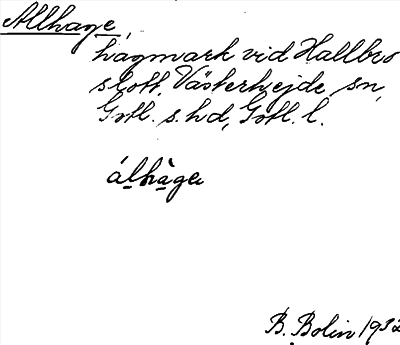 Allhage,
hagmark vid Hallbro
slott, Västerhejde sn,
Gotl. s. hd, Gotl. l.
álhàga
B. Bolin 1932